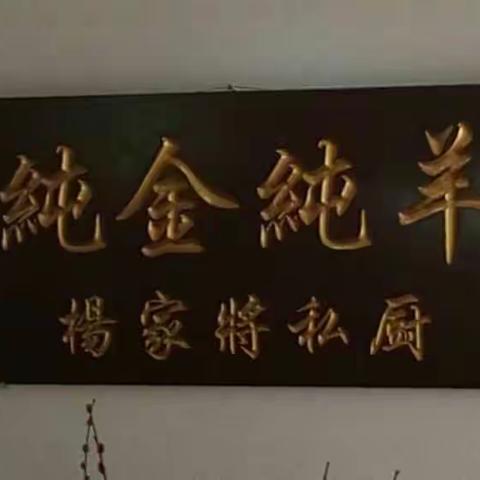 純金純羊
楊家將私厨